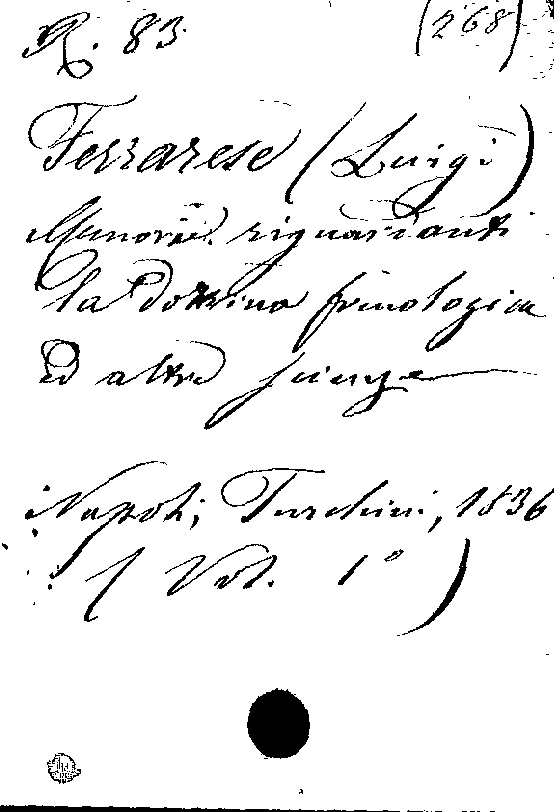 R. 83 (268)
Ferrarese (Luigi)
Memorie riguardanti
la dottrina frenologica
ed altre scienze
Napoli, Turchini, 1836
(Vol. 1°)